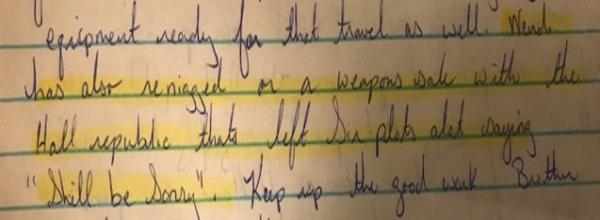 equipment ready for that travel as well. Wendi
has also reniegged on a weapons sale with the
Hall republic thats left Sir plots alot saying
"Shill be Sorry". Keep up the good work Brother